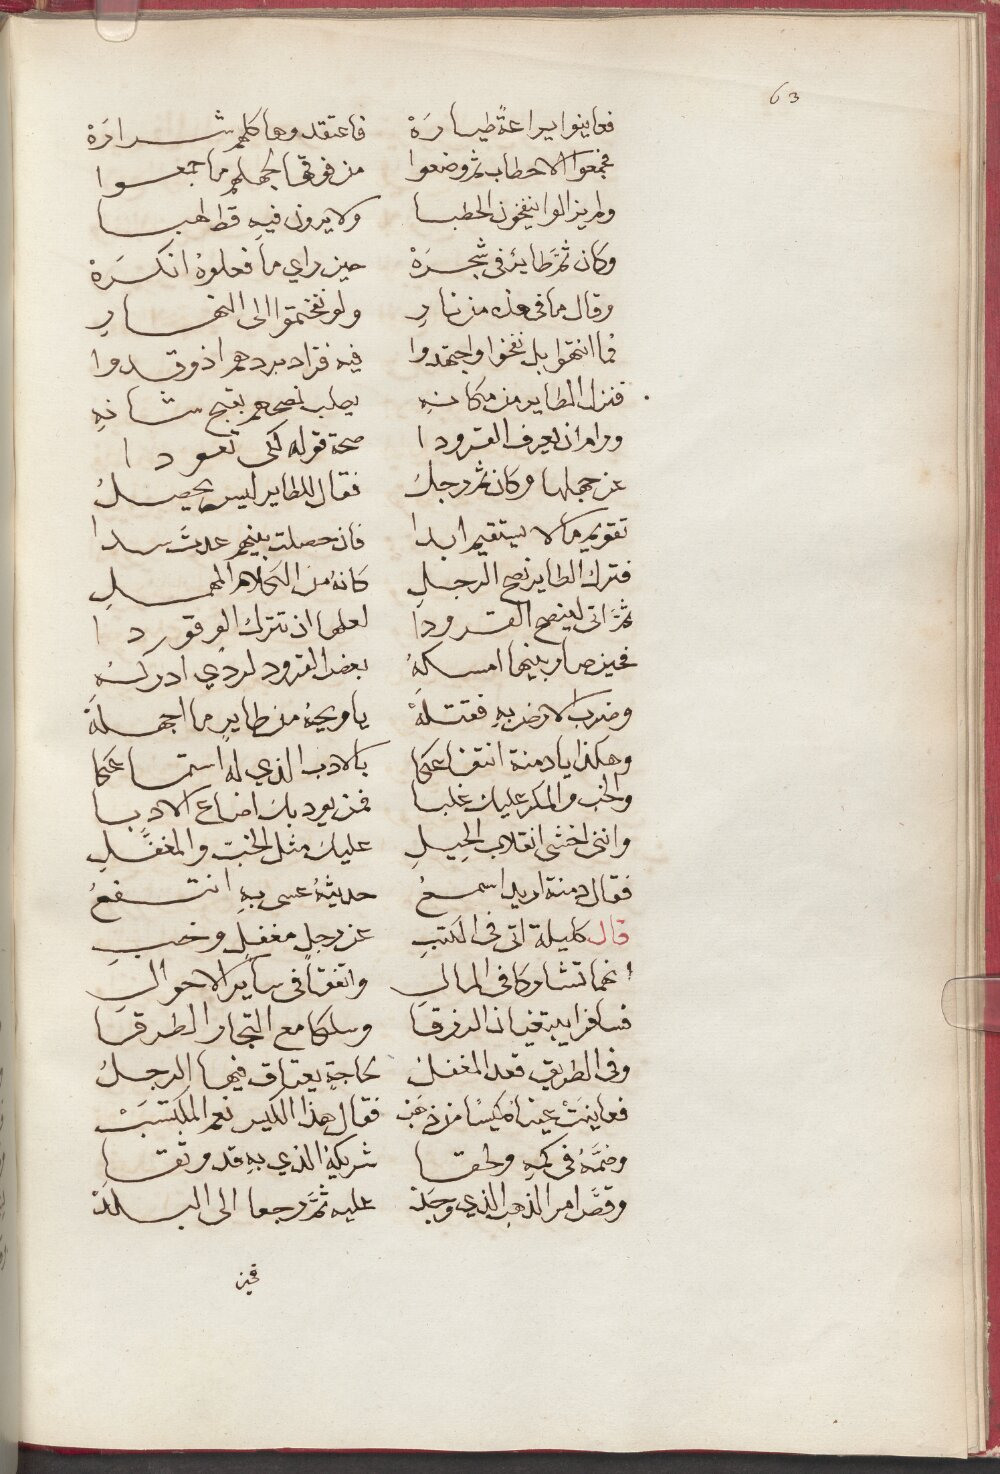 63
فعاينوا يراعةً طيارَة فاعتقدوها كلهم شرارَة
فجمعوا الاحطاب ثم وضعوا من فوقها لجهلهم ما جمعوا
ولم يزالوا ينفخون الحطبا ولا يرون فيهِ قط لهبا
وكان ثمَّ طايرٌ في شجرَة حين راي ما فعلوهُ انكرَة
وقال ما في هذه من نارِ ولو نفختموا الى النهارِ
فما انتهوا بل نفخوا واجتهدوا فيه فزاد بردهم اذ وقدوا
فنزل الطاير من مكانهِ يطلب نصحهم بقبح شانهِ
ورام ان يعرف القرودا صحة قوله لكي تعودا
عن جهلها وكان ثم رجلُ فقال للطاير ليس يحصلُ
تقويم ما لا يستقيم ابدا فان حصلت بينهم عدت سدا
فترك الطاير نصح الرجلِ كانهُ من الكلام المهملِ
ثمَّ اتى لينصح القرودا لعلها ان تترك الوقودا
فحين صار بينها امسكهُ بعض القرود لردي ادركهُ
وضرب الارض بهِ فقتلهْ يا ويحهُ من طايرٍ ما اجهلهْ
وهكذا يا دمنة انتفاعكا بالادب الذي له استماعكا
والخب والمكر عليك غلبا فمن يودبك اضاع الادبا
وانني اخشى انقلاب الحِيلِ عليك مثل الخبّ والمغفَّلِ
فقال دمنة اريد اسمعُ حديثهُ عسى بهِ انتفعُ
قال كليلة اتى في الكتبِ عن رجلٍ مغفلٍ وخبِ
انهما تشاركا في المالِ واتفقا في ساير الاحوالِ
فسافرا يبتغيان الرزقا وسلكا مع التجار الطرقا
وفي الطريق قعد المغفلُ لحاجةٍ يعتاق فيها الرجلُ
فعاينَتْ عيناهُ كيسًا من ذهَبْ فقال هذا الكيس نعم المكتسَبْ
وضمَّهُ في كمهِ ولحقا شريكهُ الذي بهِ قد وثقا
وقصَّ امر الذهب الذي وجَدْ عليه ثمَّ رجعا الى البلَدْ
فحين